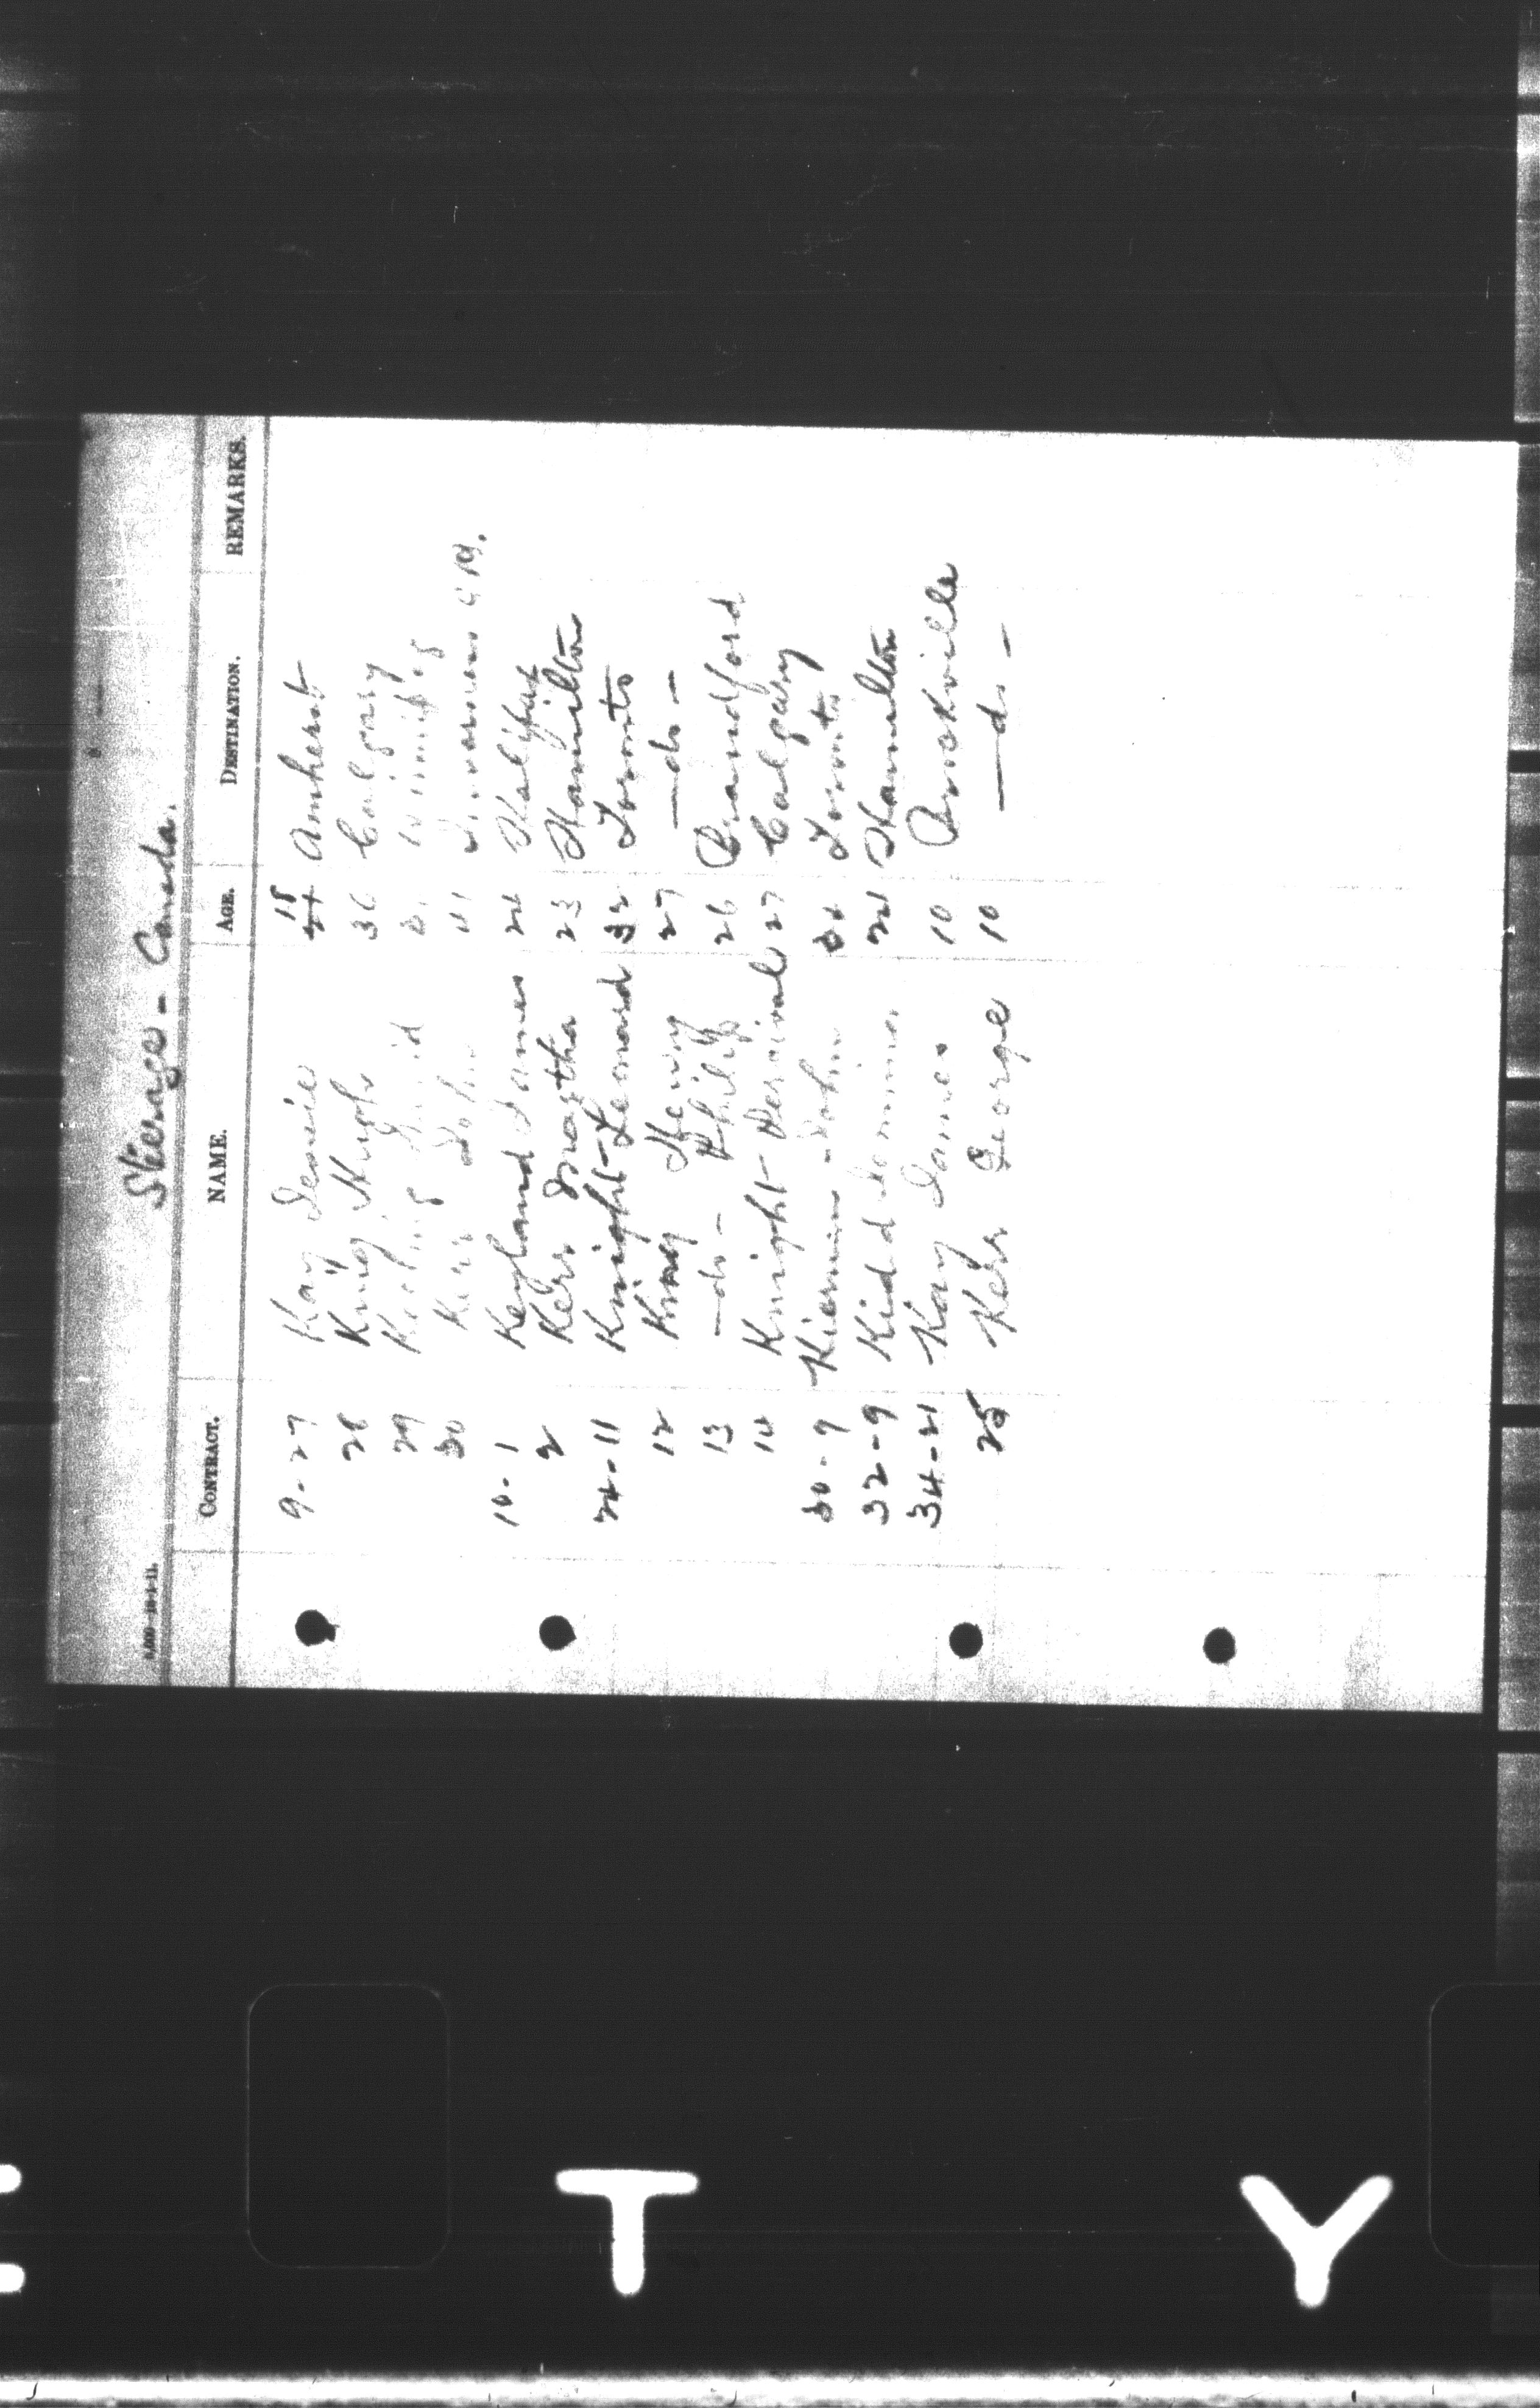 Steerage - Canada.
CONTRACT. NAME. AGE. DESTINATION. REMARKS.
9-27 Kay Jessie 18 Amherst
28 King Hugh 36 Calgary
29 Winnipeg
30 Kerr John Inverness
10-1 James 24 Halifax
2 Kerr Martha 23 Hamilton
24-11 Knight Leonard 32 Toronto
12 King Henry 27 -do-
13 -do- Philip 26 Brandford
14 Knight Percival 27 Calgary
30-9 Kiernan John Toronto
32-9 Kidd 21 Hamilton
34-21 Kay James 10 Brockville
25 Kerr George 10 -do-
T Y